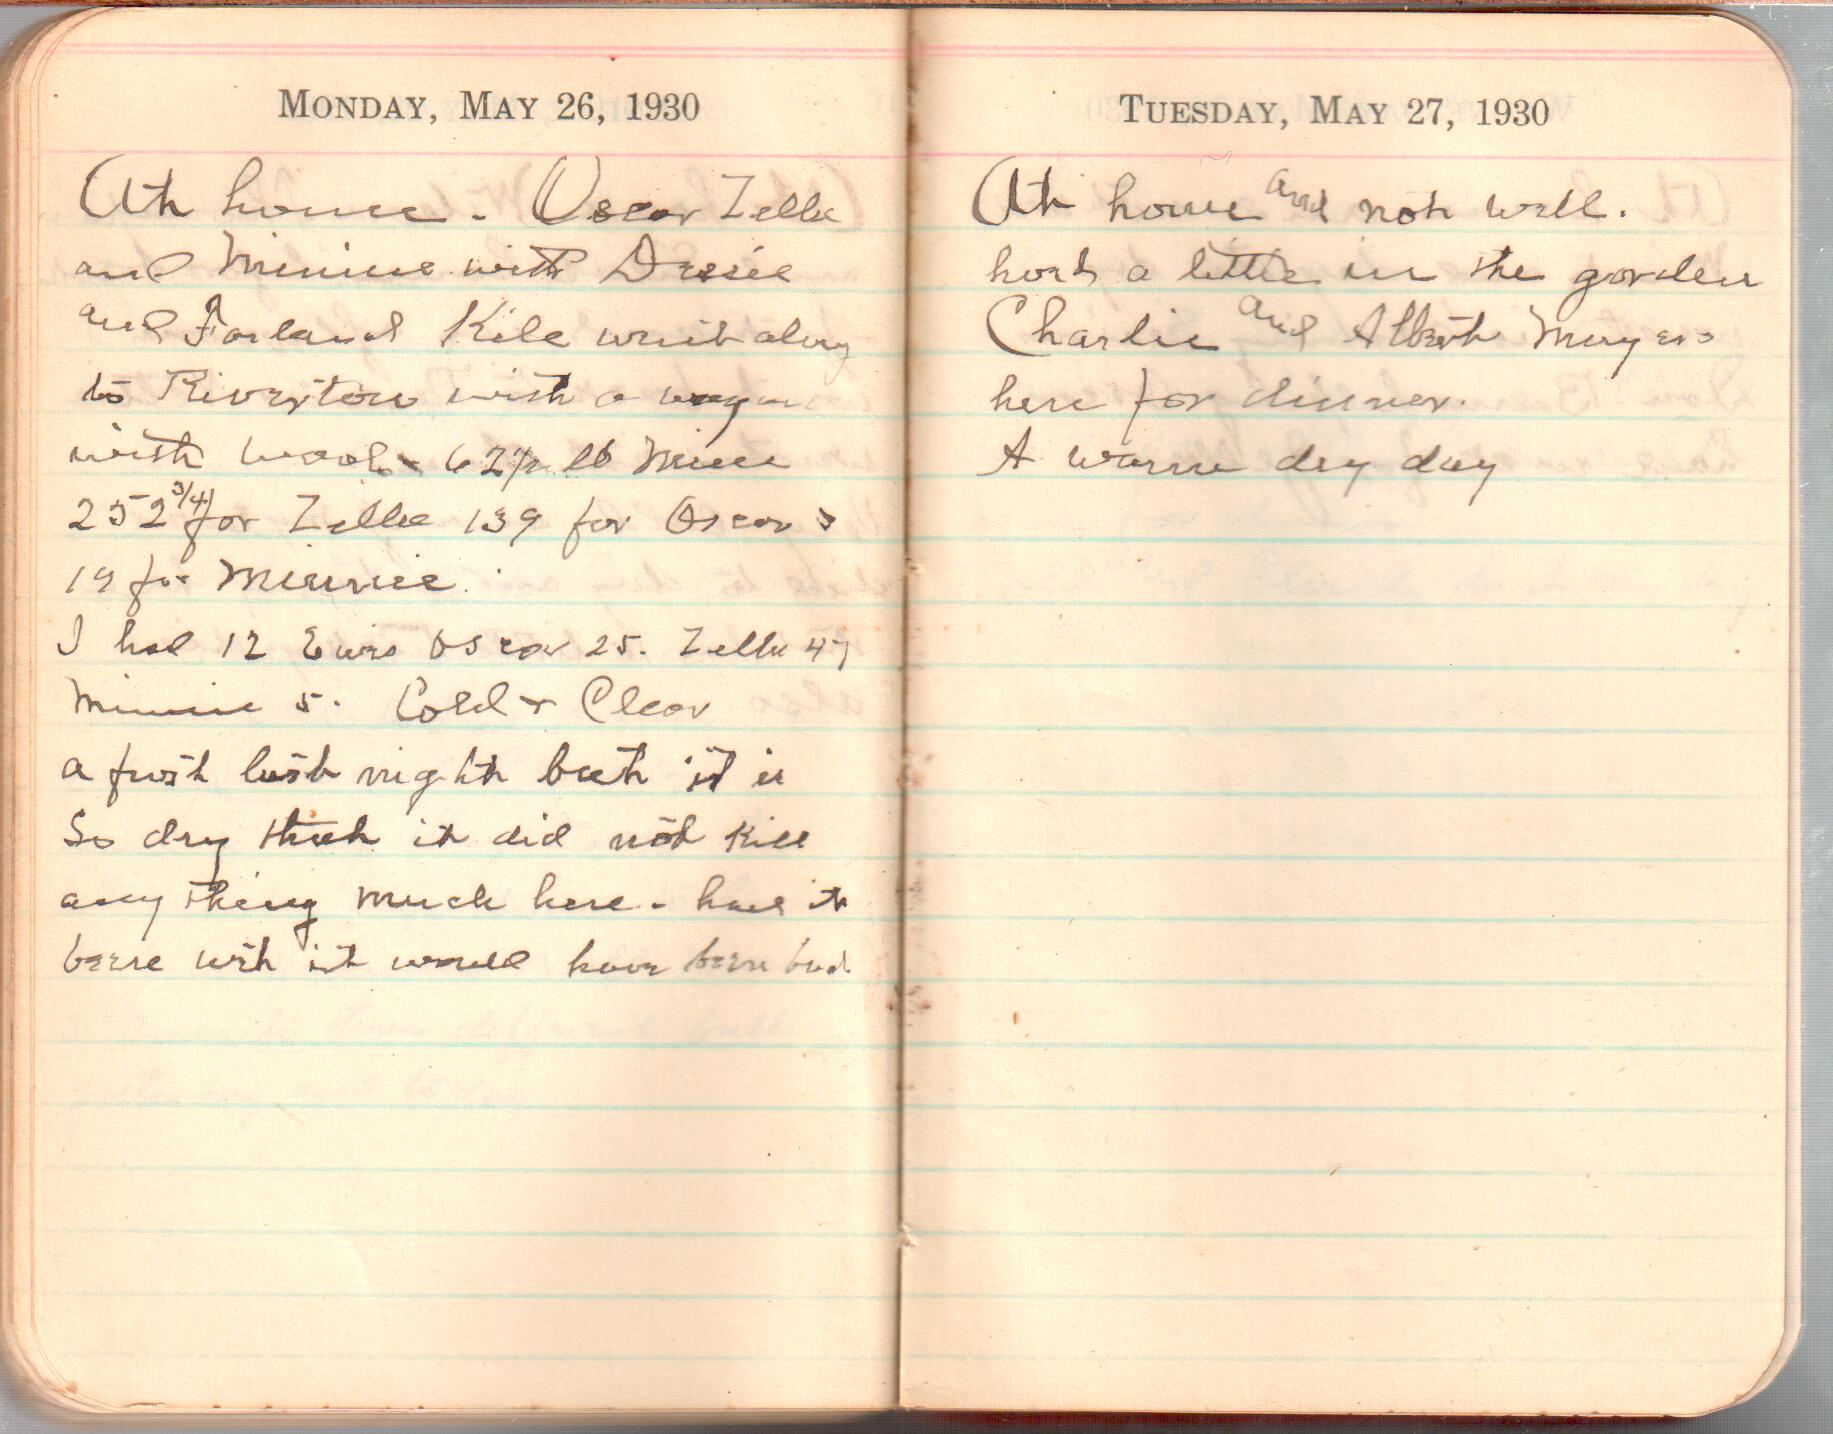 MONDAY, MAY 26, 1930
At home. Oscar Zella
and Minnie with Dessie
and Farland Kile went along
to Riverton with a wagon
with wool - 62½ lb Mine
252 3/4 for Zella 139 for Oscar &
19 for Minnie.
I had 12 Ewes Oscar 25. Zella 47
Minnie 5. Cold & Clear
a frost last night but it is
So dry that it did not Kill
any thing much here - had it
been wet it would have been bad
TUESDAY, MAY 27, 1930
At home and not well.
hoed a little in the garden
Charlie and Albert Moyers
here for dinner.
A warm dry day